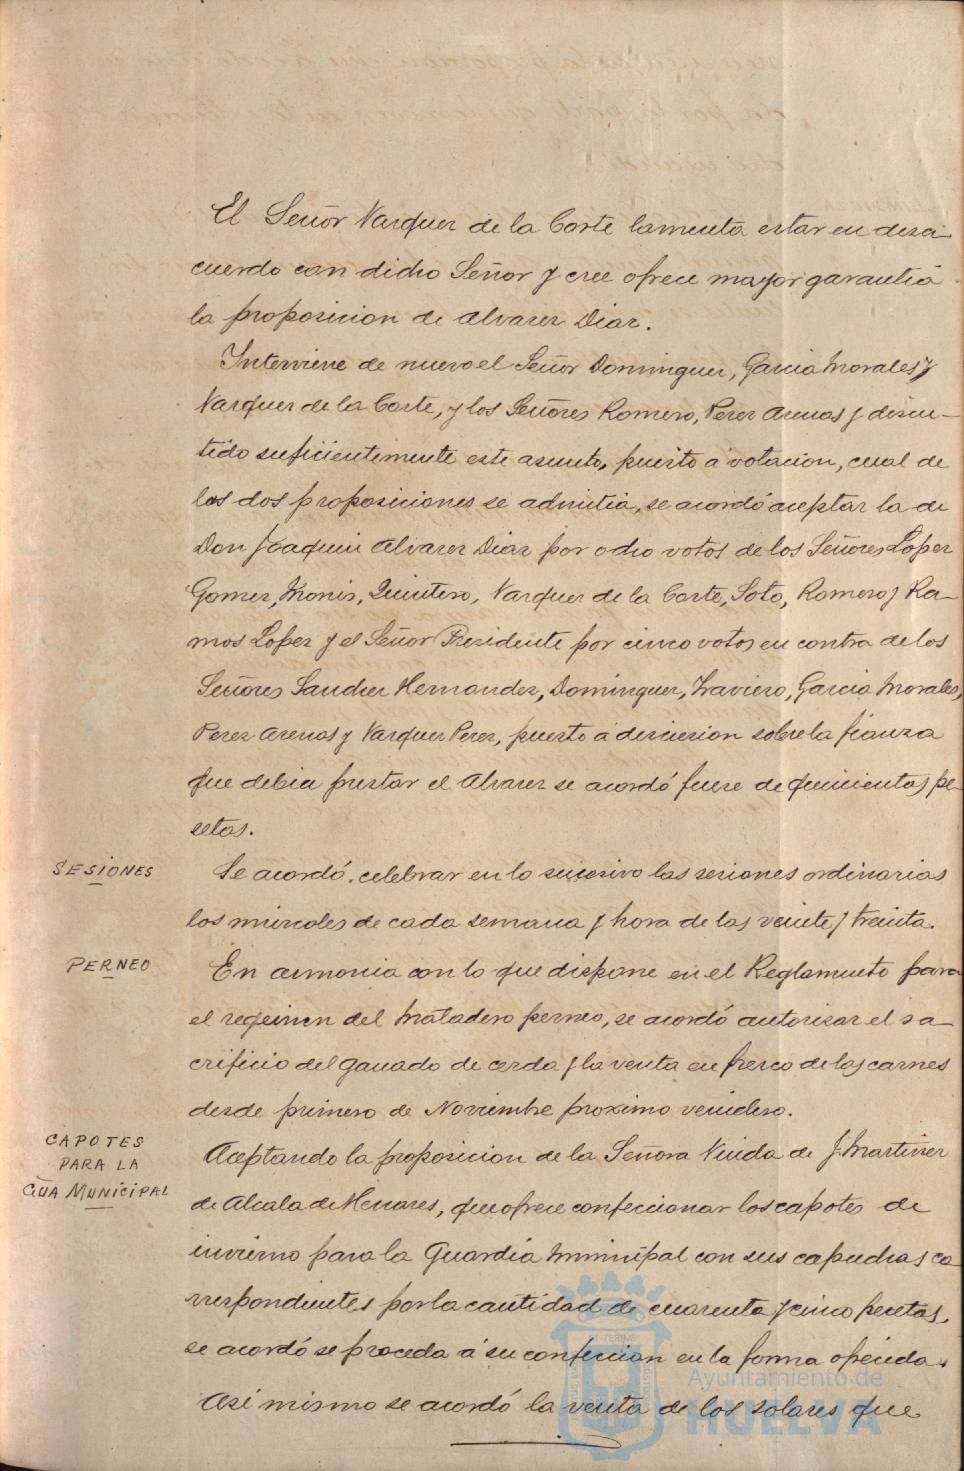 El Señor Vazquez de la Corte lamenta estar en desa
cuerdo con dicho Señor y cree ofrece mayor garantia
la proposicion de Alvarez Diaz.
Interviene de nuevo el Señor Dominguez, Garcia Morales y
Vazquez de la Corte, y los Señores Romero, Perez Arenas y discu-
tido suficientemente este asunto, puesto a votacion, cual de
las dos proposiciones se admitia, se acordó aceptar la de
Don Joaquin Alvarez Diaz por ocho votos de los Señores Lopez
Gomez, Monis, Quintero, Vazquez de la Corte, Soto, Romero y Ra-
mos Lopez y el Señor Presidente por cinco votos en contra de los
Señores Sanchez Hernandez, Dominguez, Traviezo, Garcia Morales,
Perez Arenas y Vazquez Perez, puesto a discusion sobre la fianza
que debia prestar el Alvarez se acordó fuese de quinientas pe-
setas.
SESIONES
Se acordó celebrar en lo sucesivo las sesiones ordinarias
los miercoles de cada semana y hora de las veinte y treinta.
PERNEO
En armonia con lo que dispone en el Reglamento para
el regimen del Matadero perneo, se acordó autorizar el sa
crificio del ganado de cerda y la venta en fresco de las carnes
desde primero de Noviembre proximo venidero.
CAPOTES
PARA LA
GUA MUNICIPAL
Aceptando la proposicion de la Señora Viuda de J. Martinez
de Alcala de Henares, que ofrece confeccionar los capotes de
invierno para la Guardia Municipal con sus capuchas co
rrespondientes por la cantidad de cuarenta y cinco pesetas,
se acordó se proceda a su confeccion en la forma ofrecida.
Asi mismo se acordó la venta de los solares que
Ayuntamiento de
HUELVA